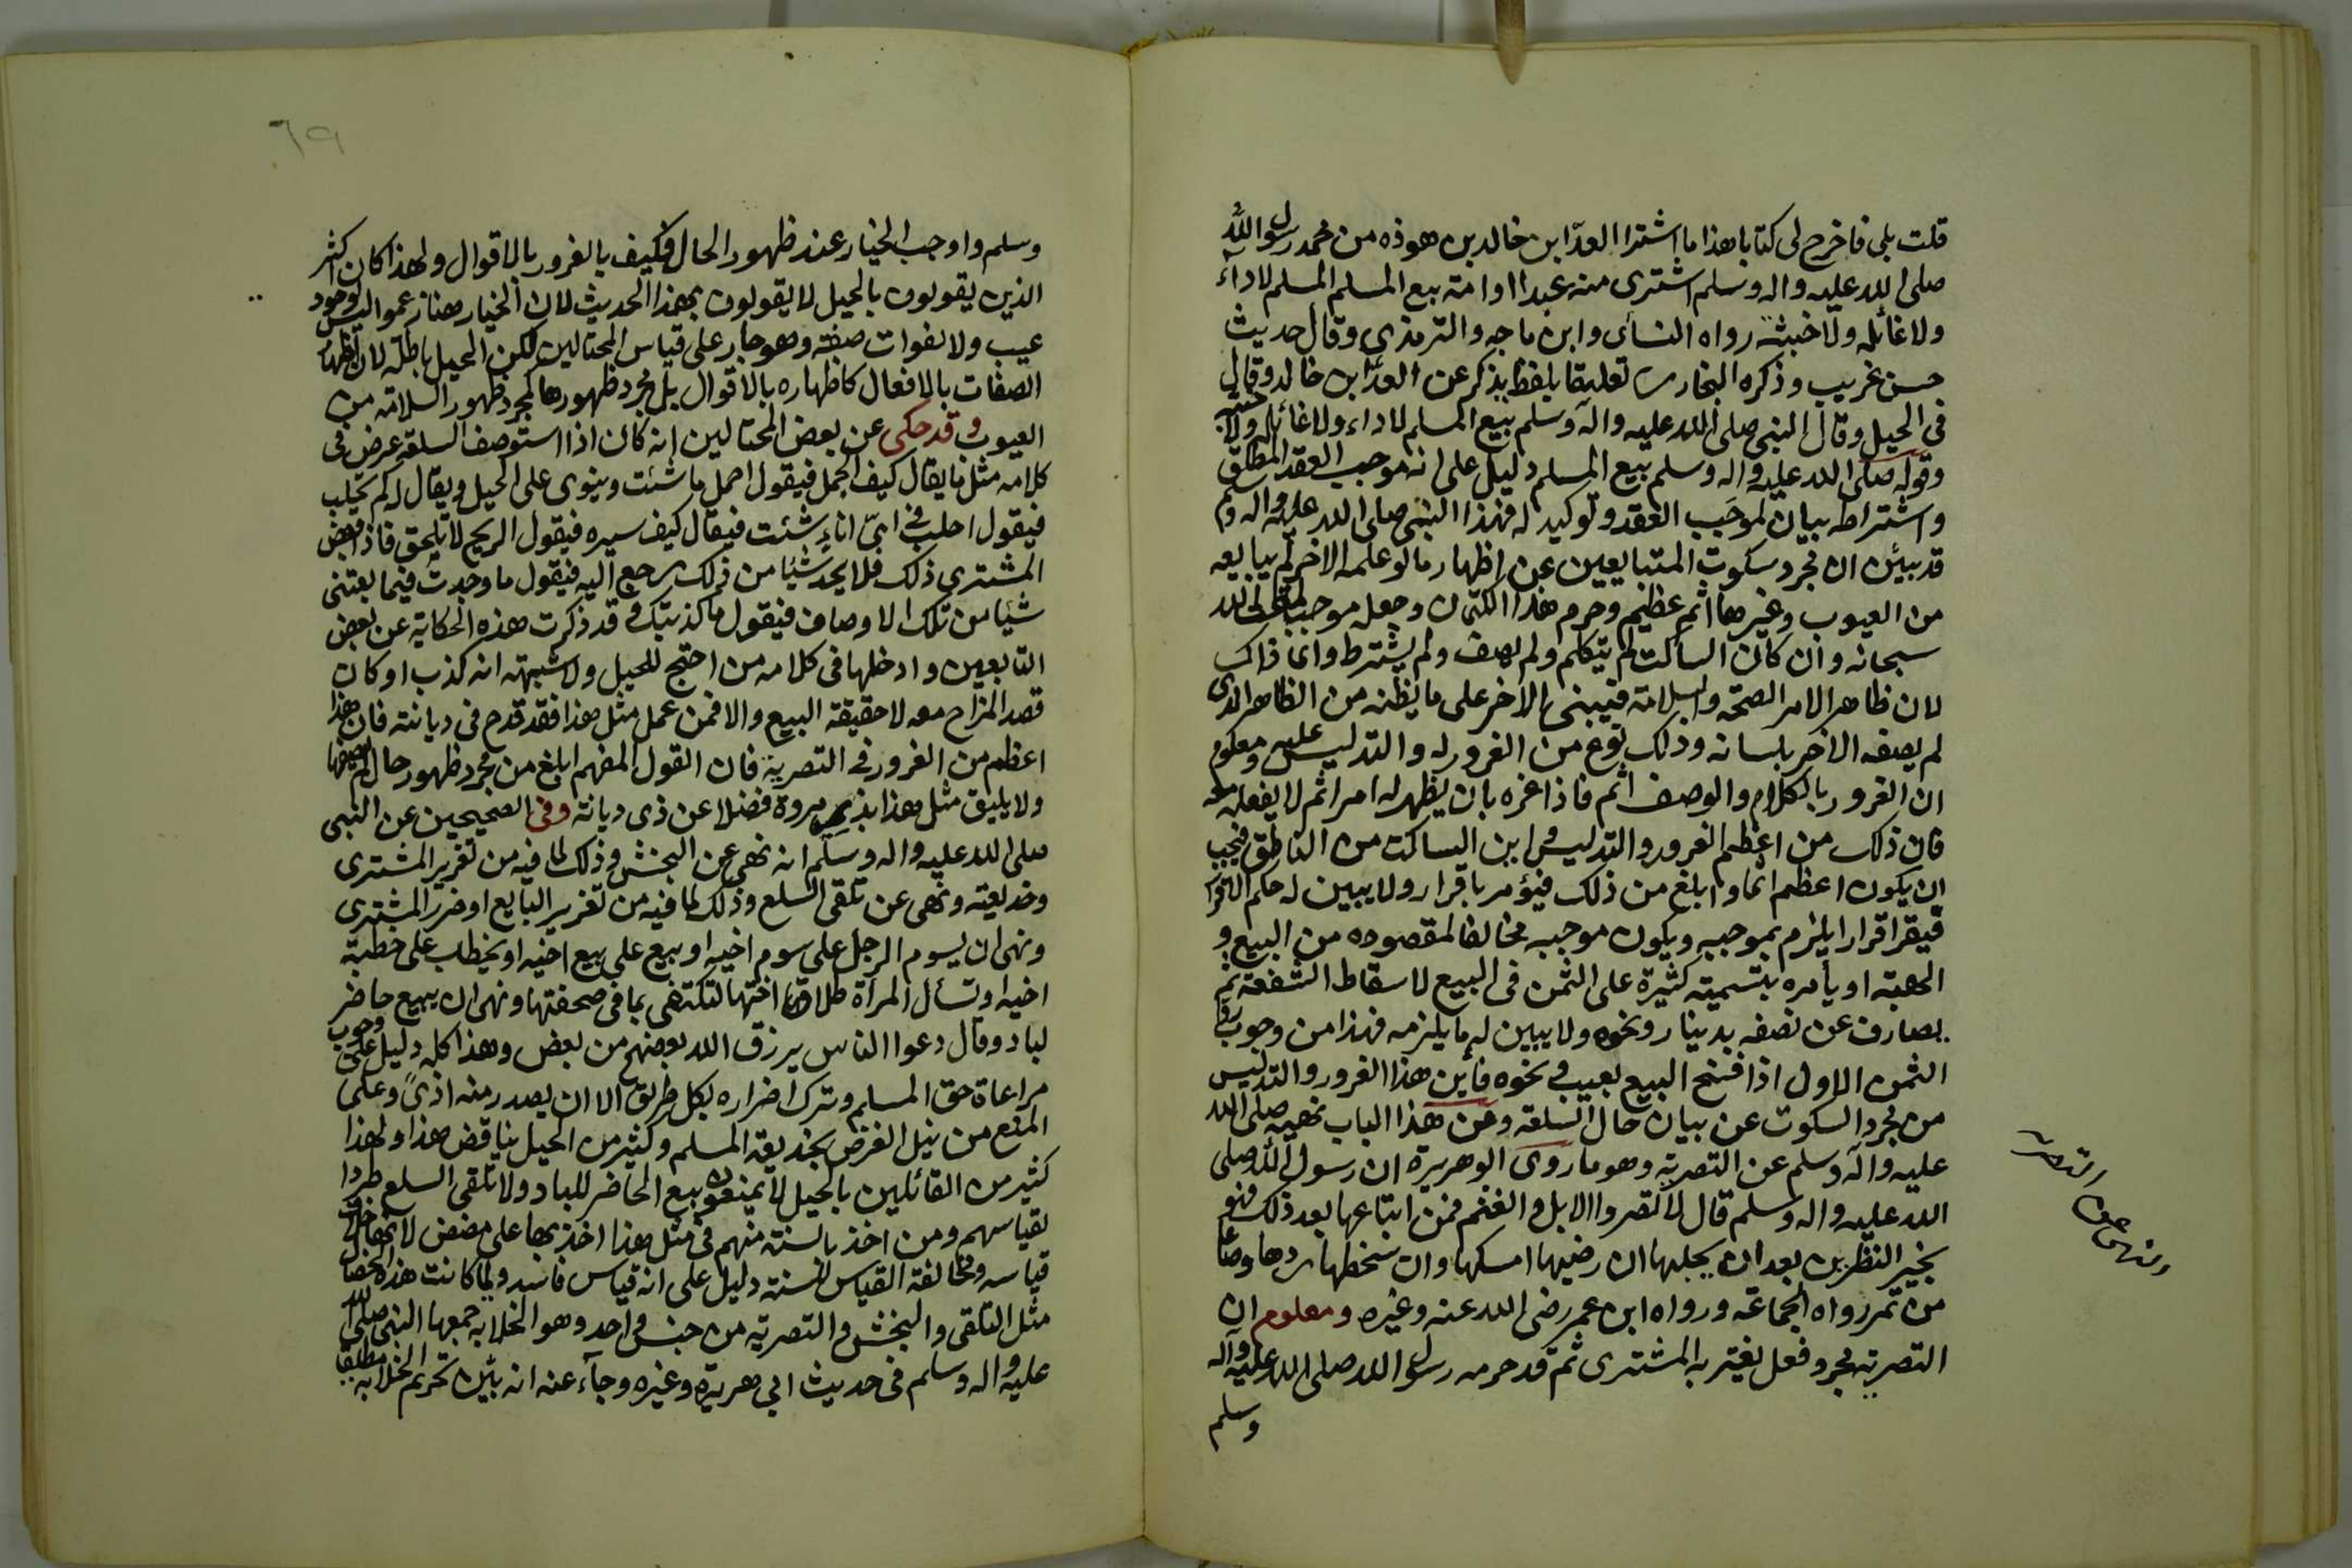 قلت بلى فاخرج لى كتابا هذا ما اشترا العدا ابن خالد بن هوذه من محمد رسول الله
صلى الله عليه واله وسلم اشترى منه عبدا او امة بيع المسلم المسلم لا داء
ولا غائله ولا خبثة رواه النسائى وابن ماجه والترمذى وقال حديث
حسن غريب وذكره البخارى تعليقا بلفظ يذكر عن العدا ابن خالد وقال
فى الحيل وقال النبى صلى الله عليه واله وسلم بيع المسلم لا داء ولا غائله ولا خبثة
وقوله صلى الله عليه واله وسلم بيع المسلم دليل على انه موجب العقد المطلق
واشتراطه بيان لموجب العقد وتوكيد له فهذا النبى صلى الله عليه واله وسلم
قد بين ان مجرد سكوت المتبايعين عن اظهار ما لو علمه الاخر لم يبايعه
من العيوب وغيرها اثم عظيم وحرم هذا الكتمان وجعله موجبا لمقت الله
سبحانه وان كان الساكت لم يتكلم ولم يصف ولم يشترط وانما ذاك
لان ظاهر الامر الصحة والسلامة فيبنى الاخر على ما يظنه من الظاهر الذى
لم يصفه الاخر بلسانه وذلك نوع من الغرور له والتدليس عليه ومعلوم
ان الغرور بالكلام والوصف اثم فاذا غره بان يظهر له امرا ثم لا يفعله معه
فان ذلك من اعظم الغرور والتدليس واين الساكت من الناطق فيجب
ان يكون اعظم اثما وابلغ من ذلك فيؤمر باقرار ولا يبين له حكم الاقرار
فيقر اقرارا يلزم بموجبه ويكون موجبه مخالفا لمقصوده من البيع و
الهبة او يأمره بتسمية كثيرة على الثمن فى البيع لاسقاط الشفعة ثم
يصارف عن نصفه بدينار ونحوه ولا يبين له ما يلزمه فهذا من وجوب رد
الثمن الاول اذا فسخ البيع بعيب ونحوه فأين هذا الغرور والتدليس
من مجرد السكوت عن بيان حال السلعة ومن هذا الباب نهيه صلى الله
عليه واله وسلم عن التصرية وهو ما روى ابو هريرة ان رسول الله صلى
الله عليه واله وسلم قال لا تصروا الابل والغنم فمن ابتاعها بعد ذلك فهو
بخير النظرين بعد ان يحلبها ان رضيها امسكها وان سخطها ردها وصاعا
من تمر رواه الجماعة ورواه ابن عمر رضى الله عنه وغيره ومعلوم ان
التصرية مجرد فعل يغتر به المشترى ثم قد حرمه رسول الله صلى الله عليه واله
وسلم
ونهى عن التصريه
٦٩
وسلم واوجب الخيار عند ظهور الحال فكيف بالغرور بالاقوال ولهذا كان اكثر
الذين يقولون بالحيل لا يقولون بهذا الحديث لان الخيار هنا زعموا ليس لوجود
عيب ولا لفوات صفة وهو جار على قياس المحتالين لكن الحيل باطلة لان اظهار
الصفات بالافعال كاظهاره بالاقوال بل مجرد ظهورها كمجرد ظهور السلامة من
العيوب وقد حكى عن بعض المحتالين انه كان اذا استوصف السلعة عرض فى
كلامه مثل ما يقال كيف الجمل فيقول احمل ما شئت وينوى على الحيل ويقال له كم تحلب
فيقول احلب فى اىّ اناء شئت فيقال كيف سيره فيقول الريح لا تلحق فاذا قبض
المشترى ذلك فلا يجد شيئا من ذلك رجع اليه فيقول ما وجدت فيما بعتنى
شيئا من تلك الاوصاف فيقول ما كذبتك وقد ذكرت هذه الحكاية عن بعض
التابعين وادخلها فى كلامه من احتج للحيل ولاشبهه انه كذب او كان
قصد المزاح معه لا حقيقة البيع والا فمن عمل مثل هذا فقد قدح فى ديانته فان هذا
اعظم من الغرور فى التصرية فان القول المفهم ابلغ من مجرد ظهور حال لم يصفها
ولا يليق مثل هذا بذى مروة فضلا عن ذى ديانة وفى الصحيحين عن النبى
صلى الله عليه واله وسلم انه نهى عن النجش وذلك لما فيه من تغرير المشترى
وخديعته ونهى عن تلقى السلع وذلك لما فيه من تغرير البايع او ضرر المشترى
ونهى ان يسوم الرجل على سوم اخيه او يبيع على بيع اخيه او يخطب على خطبة
اخيه او تسأل المرأة طلاق اختها لتكتفى بما فى صحفتها ونهى ان يبيع حاضر
لباد وقال دعوا الناس يرزق الله بعضهم من بعض وهذا كله دليل على وجوب
مراعاة حق المسلم وترك اضراره بكل طريق الا ان يصدر منه اذىً وعلى
المنع من نيل الغرض بخديعة المسلم وكثير من الحيل يناقض هذا ولهذا
كثير من القائلين بالحيل لا يمنعون بيع الحاضر للباد ولا تلقى السلع طردا
لقياسهم ومن اخذ بالسنة منهم فى مثل هذا اخذ بها على مضض لانها خلاف
قياسه ومخالفة القياس للسنة دليل على انه قياس فاسد ولما كانت هذه الخصال
مثل التلقى والنجش والتصرية من جنس واحد وهو الخلابه جمعها النبى صلى الله
عليه واله وسلم فى حديث ابى هريرة وغيره وجآء عنه انه بيّن تحريم الخلابه مطلقا